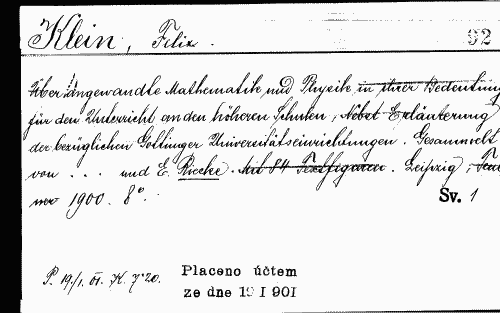 Klein, Felix. 92
Über angewandte Mathematik und Physik in ihrer Bedeutung
für den Unterricht an den höheren Schulen, Nebst Erläuterung
der bezüglichen Göttinger Universitätseinrichtungen. Gesammelt
von ... und E. Riecke. Mit 84 Textfiguren. Leipzig,
ner 1900. 8°. Sv. 1
P. 19/1. 01. K. 7·20. Placeno účtem
ze dne 19 I 901